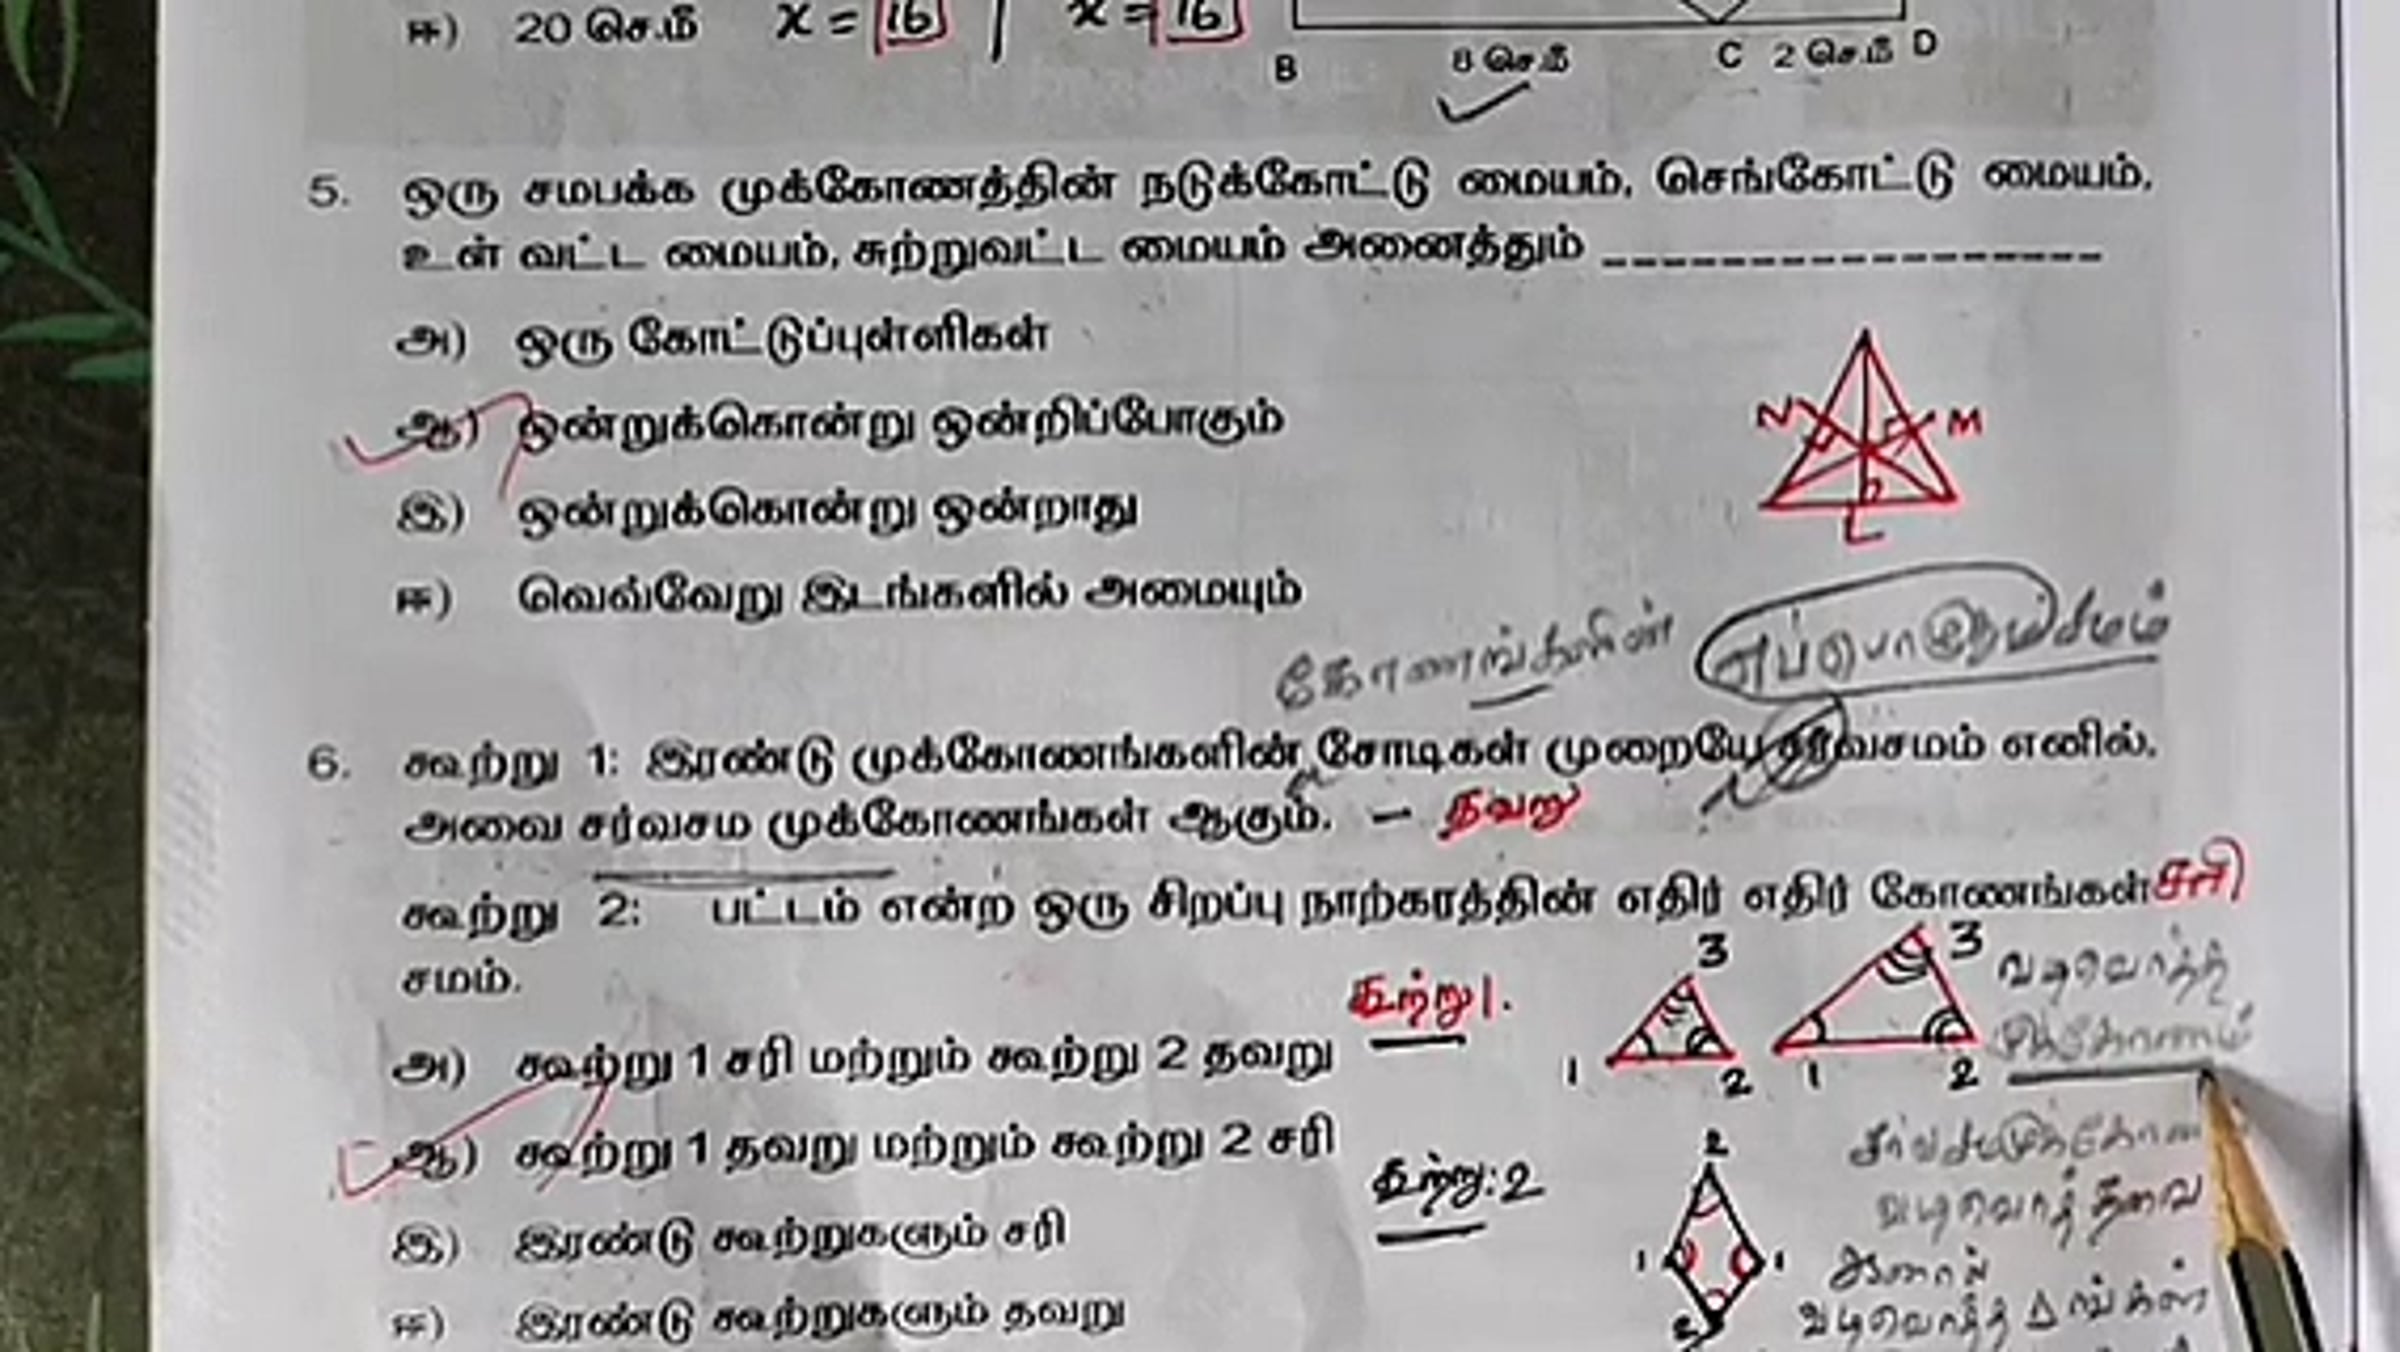 ஈ) 20 செ.மீ x = 16 | x = 16
B 8 செ.மீ C 2 செ.மீ D
5. ஒரு சமபக்க முக்கோணத்தின் நடுக்கோட்டு மையம், செங்கோட்டு மையம்,
உள் வட்ட மையம், சுற்றுவட்ட மையம் அனைத்தும் _ _ _ _ _ _ _ _ _ _ _ _ _ _ _ _ _
அ) ஒரு கோட்டுப்புள்ளிகள்
ஆ) ஒன்றுக்கொன்று ஒன்றிப்போகும்
N M
இ) ஒன்றுக்கொன்று ஒன்றாது
L
ஈ) வெவ்வேறு இடங்களில் அமையும்
கோணங்களின் எப்பொழுதும் சமம்
6. கூற்று 1: இரண்டு முக்கோணங்களின் சோடிகள் முறையே சர்வசமம் எனில்,
அவை சர்வசம முக்கோணங்கள் ஆகும். – தவறு
கூற்று 2: பட்டம் என்ற ஒரு சிறப்பு நாற்கரத்தின் எதிர் எதிர் கோணங்கள் சரி
சமம்.
கூற்று 1.
3 3 வடிவொத்த
முக்கோணம்
அ) கூற்று 1 சரி மற்றும் கூற்று 2 தவறு
1 2 1 2
ஆ) கூற்று 1 தவறு மற்றும் கூற்று 2 சரி
கூற்று: 2
2
வடிவொத்தவை
இ) இரண்டு கூற்றுகளும் சரி
1 1
ஆனால்
ஈ) இரண்டு கூற்றுகளும் தவறு
2
வடிவொத்த Δங்கள்